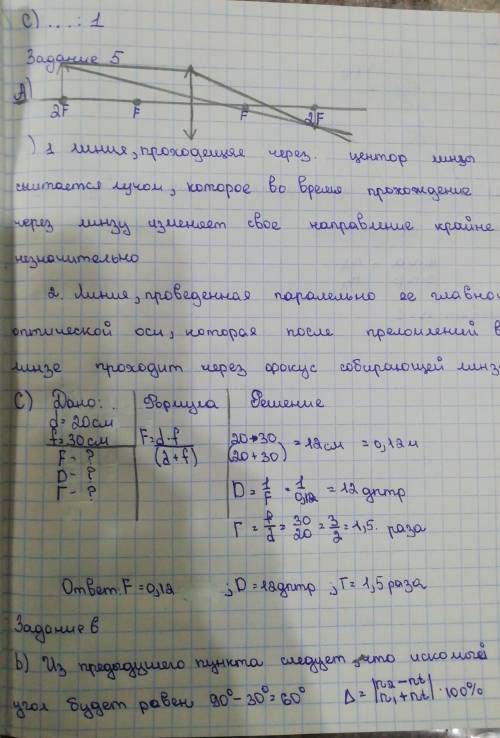 С) ...: 1
Задание 5
А)
2F F F 2F
) 1 линия, проходещяе через. центор линзы
считается лучом, которое во время прохождение
через линзу изменяет свое направление крайне
незначительно
2. Линия, проведенная паралельно ее главно
оптической оси, которая после преломлений в
линзе проходит через фокус собирающей линз
С) Дано: Формула Решение
d = 20см
f = 30см
F - ?
D - ?
Г - ?
F = d·f/(d+f)
20·30/(20+30) = 12см = 0,12м
D = 1/F = 1/0,12 = 12 дптр
Г = f/d = 30/20 = 3/2 = 1,5. раза
Ответ: F = 0,12 ; D = 12дптр ; Г = 1,5 раза
Задание 6
b) Из предыдущего пункта следует, что искомый
угол будет равен 90° - 30° = 60° Δ = |n2 - nt / n1 + nt| · 100%